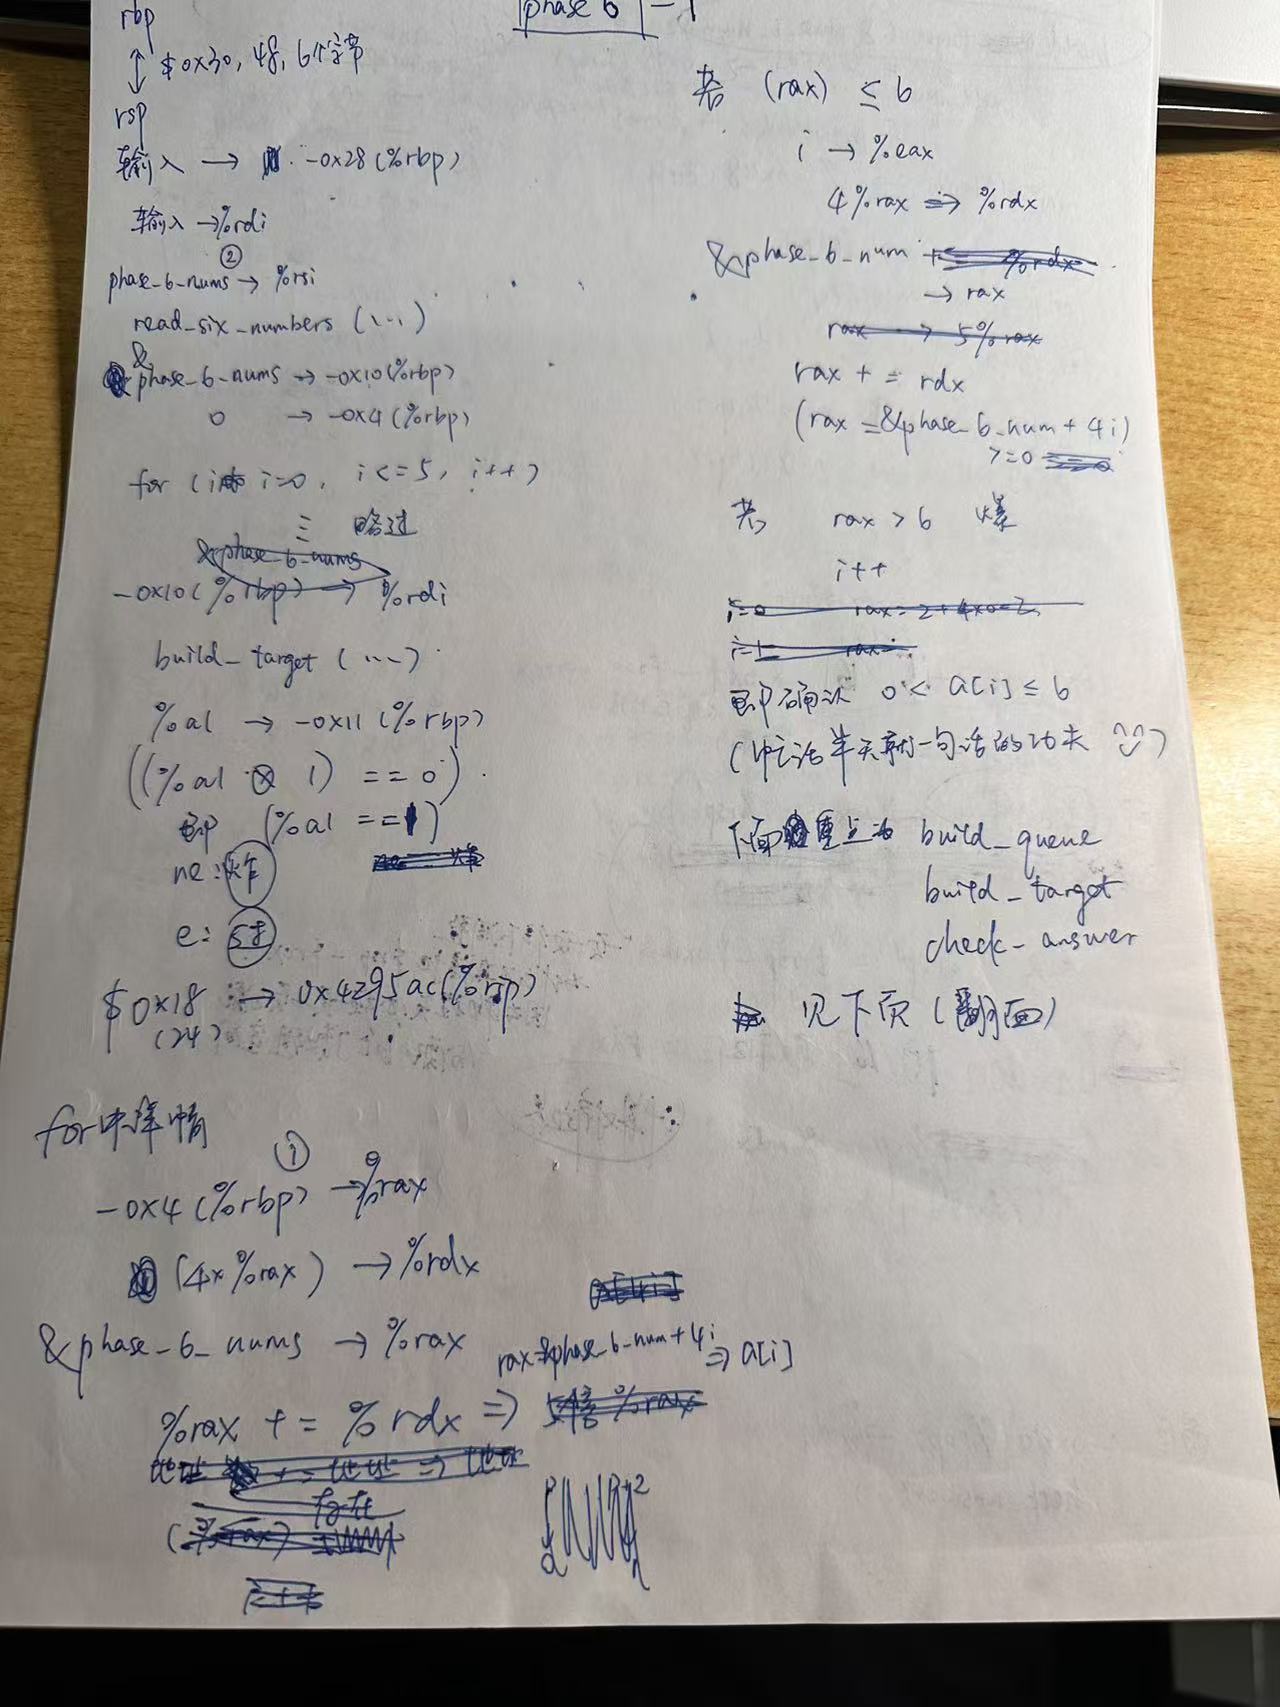 phase 6 - 1
rbp
$0x30, 48, 6个字节
rsp
输入 → -0x28(%rbp)
输入 → %rdi
②
phase_6_nums → %rsi
read_six_numbers (...)
&phase_6_nums → -0x10(%rbp)
0 → -0x4(%rbp)
for (i=0, i<=5, i++)
略过
&phase_6_nums
-0x10(%rbp) → %rdi
build_target (...)
%al → -0x11(%rbp)
((%al ⊗ 1) == 0)
即 (%al == 1)
ne: 炸
e:
$0x18 → 0x4295ac(%rip)
(24)
for中详情
①
-0x4(%rbp) → %rax
(4×%rax) → %rdx
&phase_6_nums → %rax
rax=&phase_6_num+4i ⇒ a[i]
%rax += %rdx ⇒
若 (rax) ≤ 6
i → %eax
4%rax → %rdx
&phase_6_num
→ rax
rax → 5%rax
rax += rdx
(rax=&phase_6_num+4i)
>=0
若 rax > 6 爆
i++
i=0 rax=2+4×0=2
i=1 rax=
即确认 0 < a[i] ≤ 6
半天就一句话的功夫
下面重点为 build_queue
build_target
check_answer
见下页(翻面)